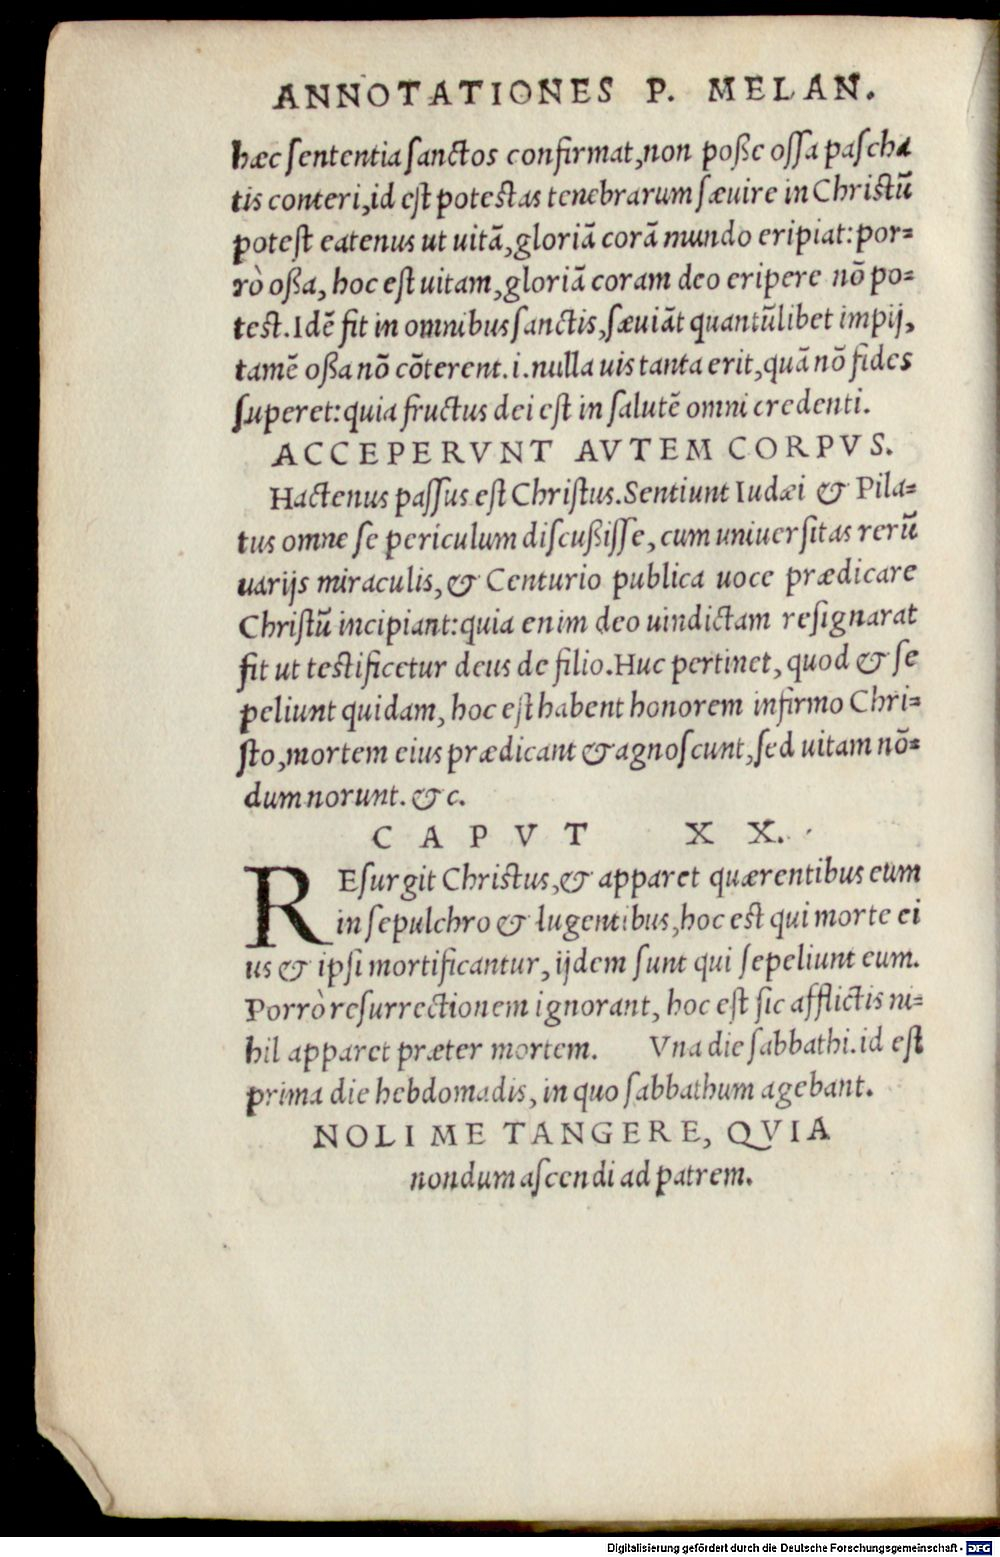 ANNOTATIONES P. MELAN.
hæc sententia sanctos confirmat, non poße ossa pascha
tis conteri, id est potestas tenebrarum sæuire in Christū
potest eatenus ut uitā, gloriā corā mundo eripiat: por=
rò oßa, hoc est uitam, gloriā coram deo eripere nō po=
test. Idē fit in omnibus sanctis, sæuiāt quantūlibet impij,
tamē oßa nō cōterent. i. nulla uis tanta erit, quā nō fides
superet: quia fructus dei est in salutē omni credenti.
ACCEPERVNT AVTEM CORPVS.
Hactenus passus est Christus. Sentiunt Iudæi & Pila=
tus omne se periculum discußisse, cum uniuersitas rerū
uarijs miraculis, & Centurio publica uoce prædicare
Christū incipiant: quia enim deo uindictam resignarat
fit ut testificetur deus de filio. Huc pertinet, quod & se
peliunt quidam, hoc est habent honorem infirmo Chri=
sto, mortem eius prædicant & agnoscunt, sed uitam nō=
dum norunt. &c.
CAPVT XX.
REsurgit Christus, & apparet quærentibus eum
in sepulchro & lugentibus, hoc est qui morte ei
us & ipsi mortificantur, ijdem sunt qui sepeliunt eum.
Porrò resurrectionem ignorant, hoc est sic afflictis ni=
hil apparet præter mortem. Vna die sabbathi. id est
prima die hebdomadis, in quo sabbathum agebant.
NOLI ME TANGERE, QVIA
nondum ascendi ad patrem.
Digitalisierung gefördert durch die Deutsche Forschungsgemeinschaft - DFG